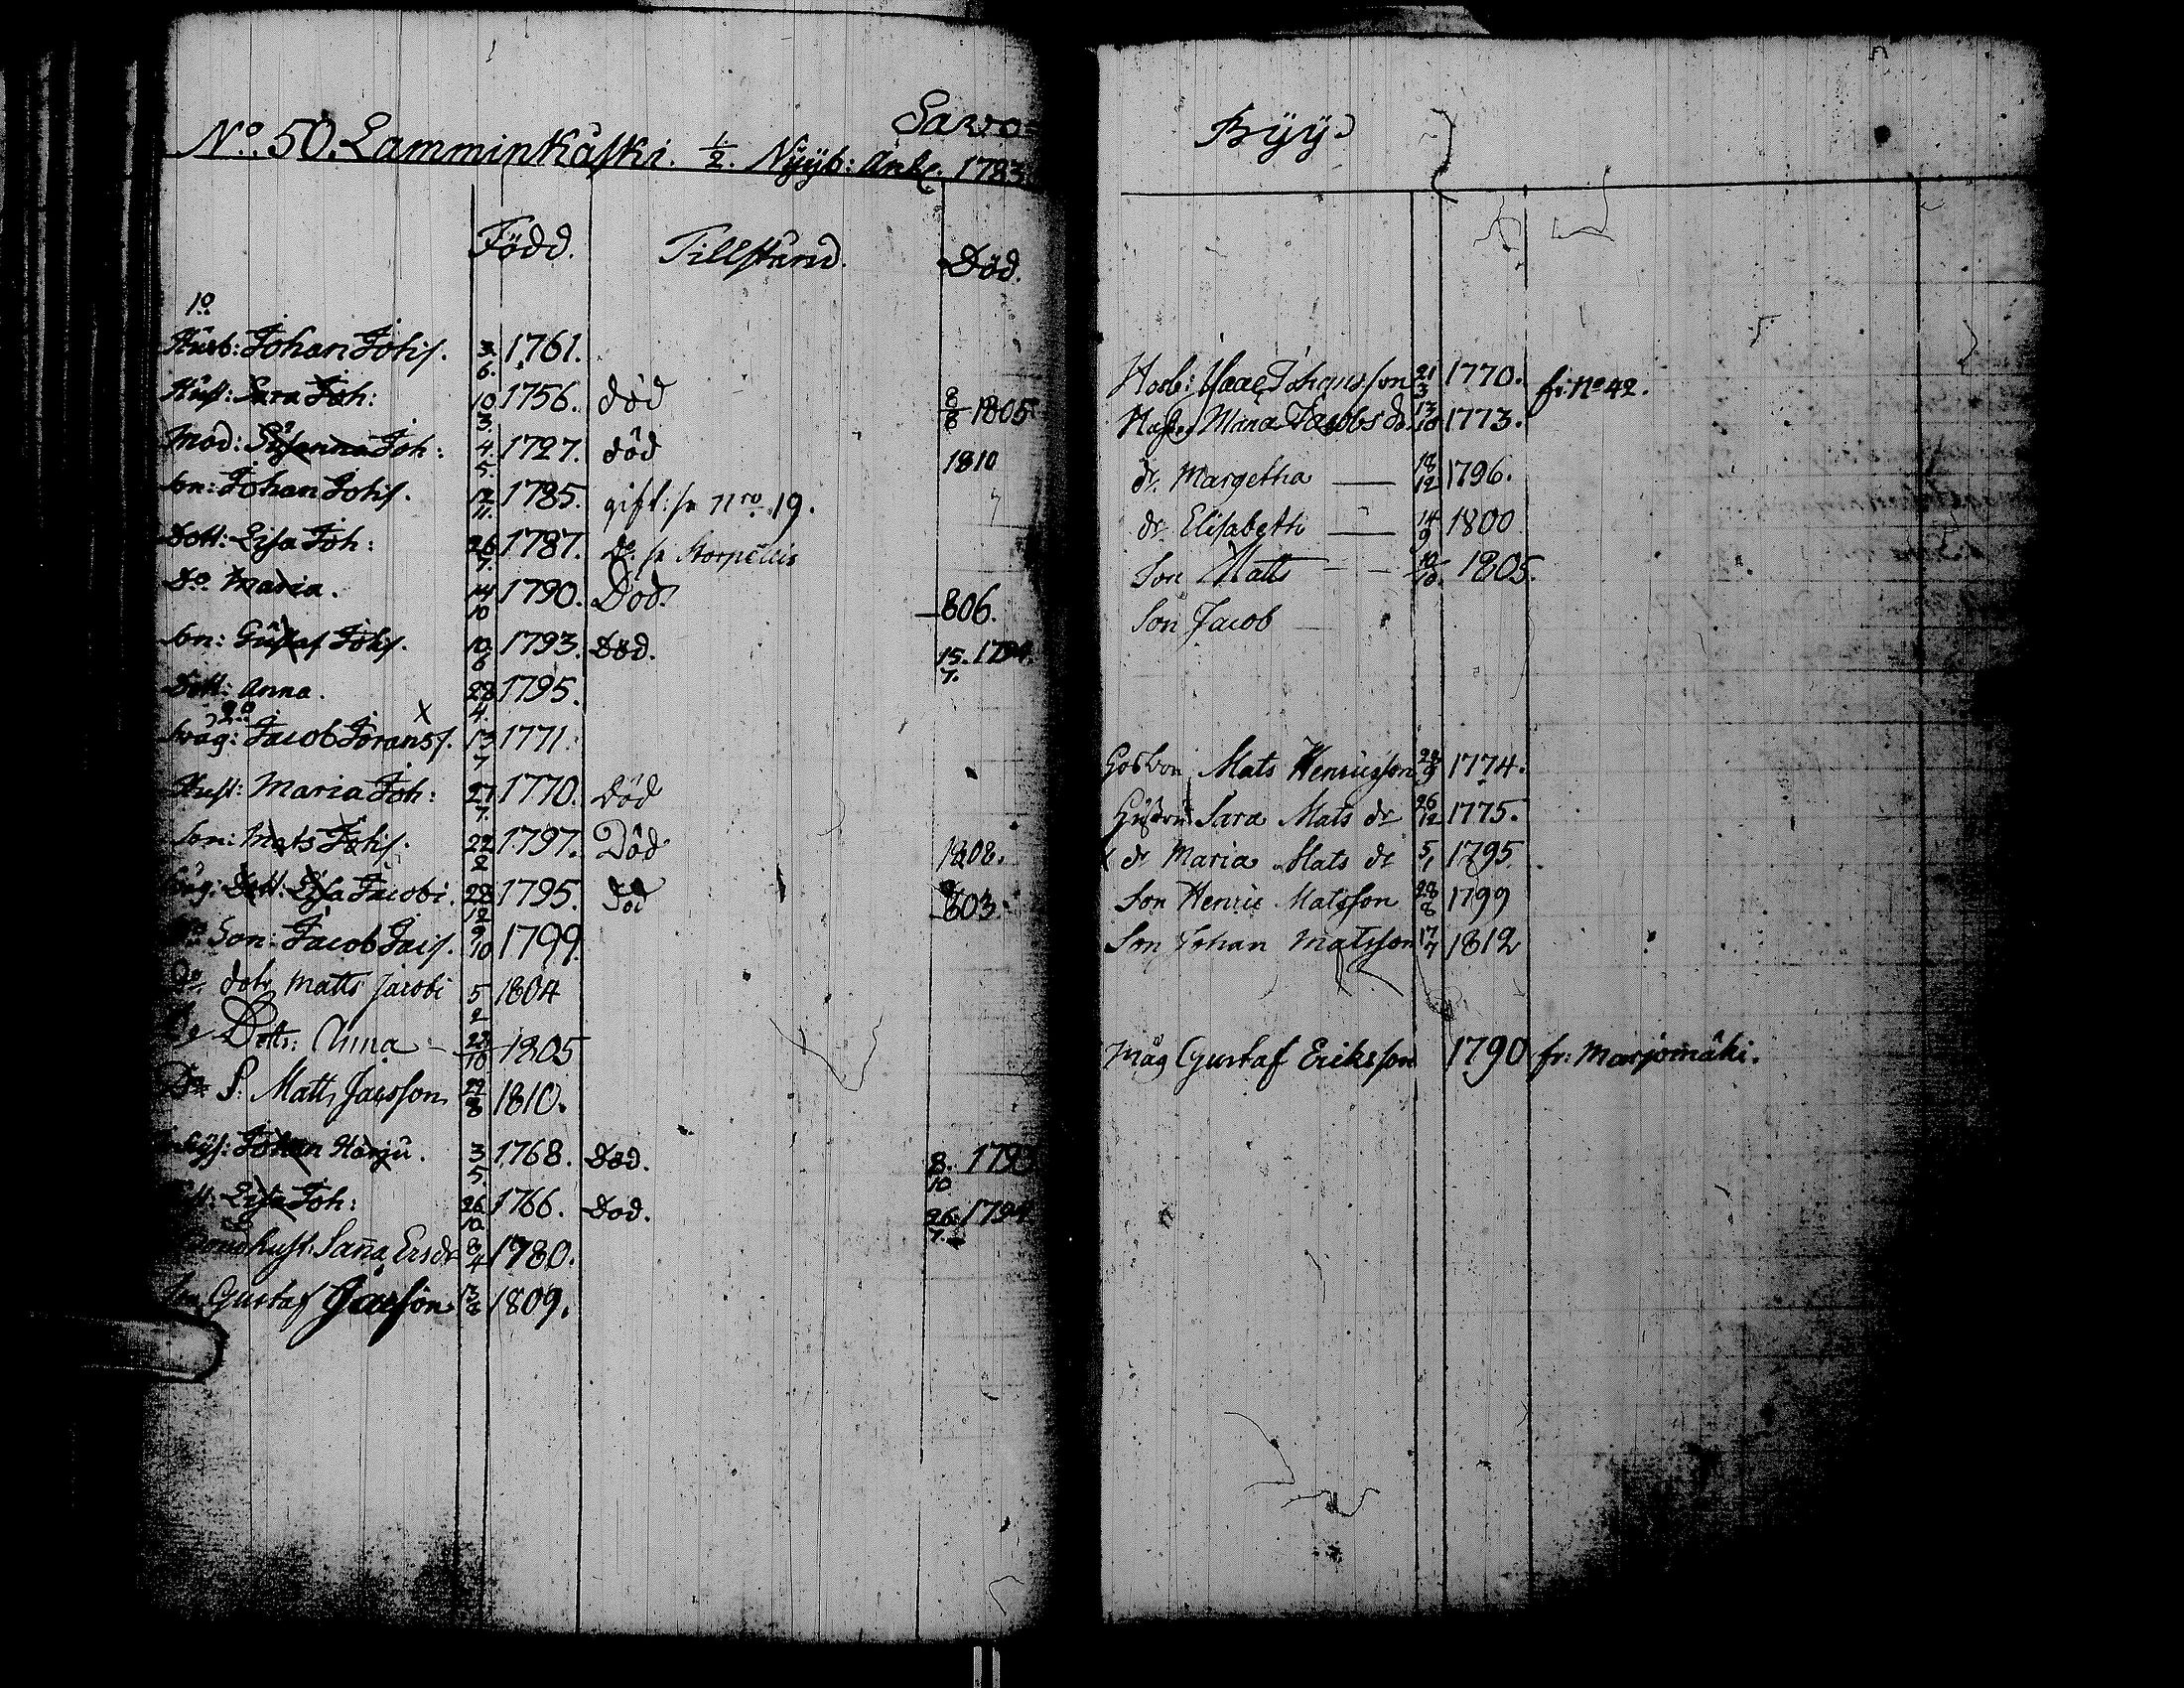 Savo=
No. 50. Laminkåski. 1/2. Nyyb: Anl. 1783.
Född. Tillstånd. Död.
1o
Husb: Johan Johs. 3/6. 1761.
Hust: Sara Joh: 10/3 1756. död 8/8 1805
Mod: Susanna Joh: 4/5. 1727. död 1810
Son: Johan Johs. 12/11. 1785. gift: se nro 19.
Dott: Lisa Joh: 26/7. 1787. do. se
Do Maria. 14/10 1790. Död. 806.
Son: Gustaf Johs. 10/6 1793. Död. 15/7. 1794.
Dott: Anna. 28/4. 1795.
2o
Swåg: Jacob Joranss. X 13/7 1771.
Hust: Maria Joh: 27/7. 1770. död
Son: Mats Johs. 22/2 1797. Död 1808.
Dott: Lisa Jacobi. 28/12 1795. död 803.
Son: Jacob Jacs. 9/10 1799.
Do dotr Matts Jacobi 5/2 1804
Dottr: Anna 28/10 1805
Do S: Matts Jacsson 22/8 1810.
Johan Harju. 3/5 1768. Död. 8/10
Lisa Joh: 26/10. 1766. Död. 26/7. 1794
Sanna Ersdr 8/4 1780.
Son Gustaf 1809.
Byy.
Hosb: Isaac Johansson 21/3 1770. fr. No 42.
Hust. Maria Jacobs dr. 13/10 1773.
dr. Margetha — 18/12 1796.
dr Elisabeth — 14/9 1800
Son Matts — — 10/10. 1805.
Son Jacob —
Mats Henricsson 28/9 1774.
Hustrun Sara Mats dr 26/12 1775.
x dr Maria Mats dr 5/1 1795
Son Henric Matsson 28/8 1799
Son Johan Matsson 17/7 1812
Måg Gustaf Eriksson 1790 fr: Marjomäki.